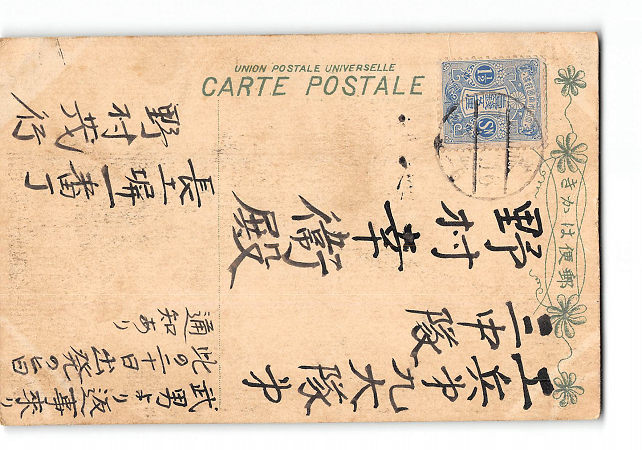 UNION POSTALE UNIVERSELLE
CARTE POSTALE
きかは便郵
工兵第九大隊第
三中隊
野村幸衛殿
武男より返事来り
此の二十日出発の旨
通知あり
長土塀一番丁
野村茂
1½ Sn